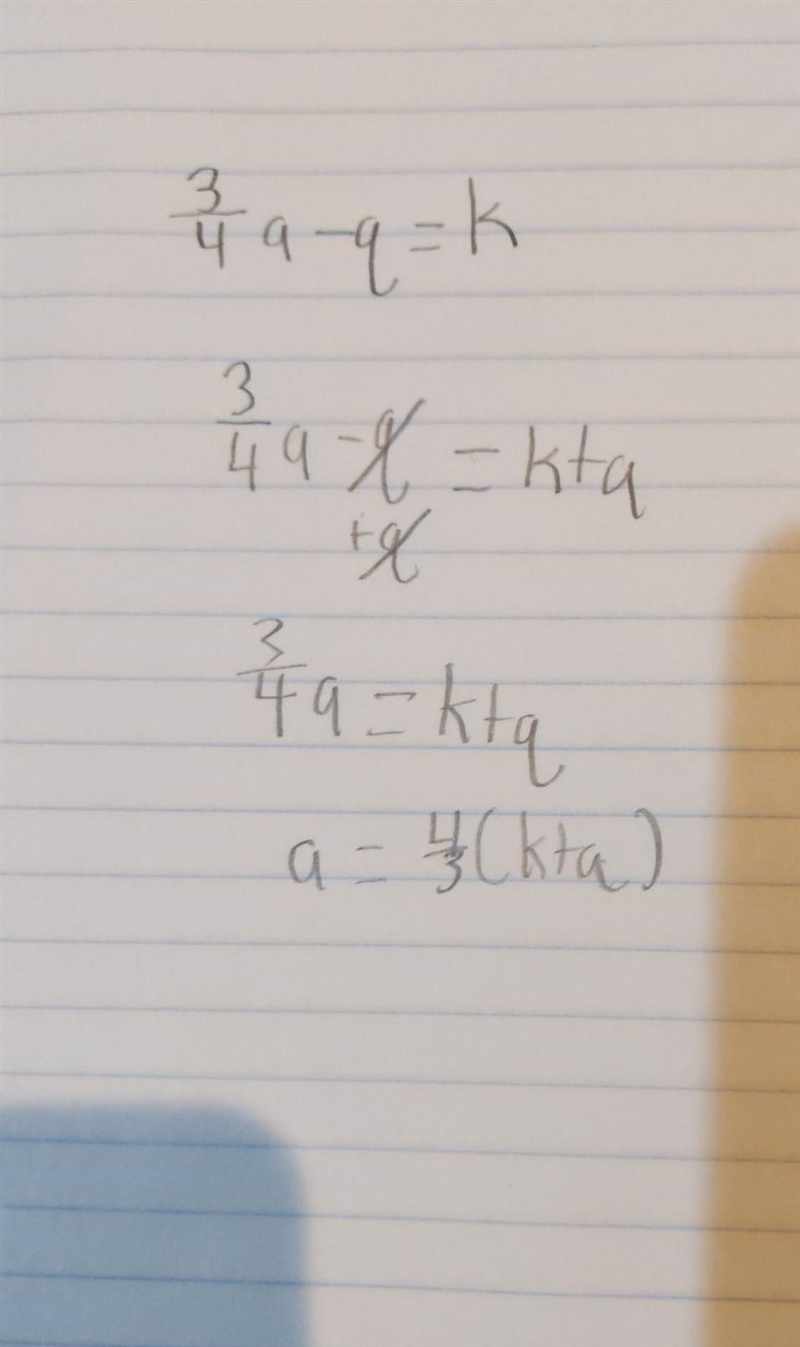 3/4 a - q = k
3/4 a - q = k + q
+ q
3/4 a = k + q
a = 4/3 (k + q)